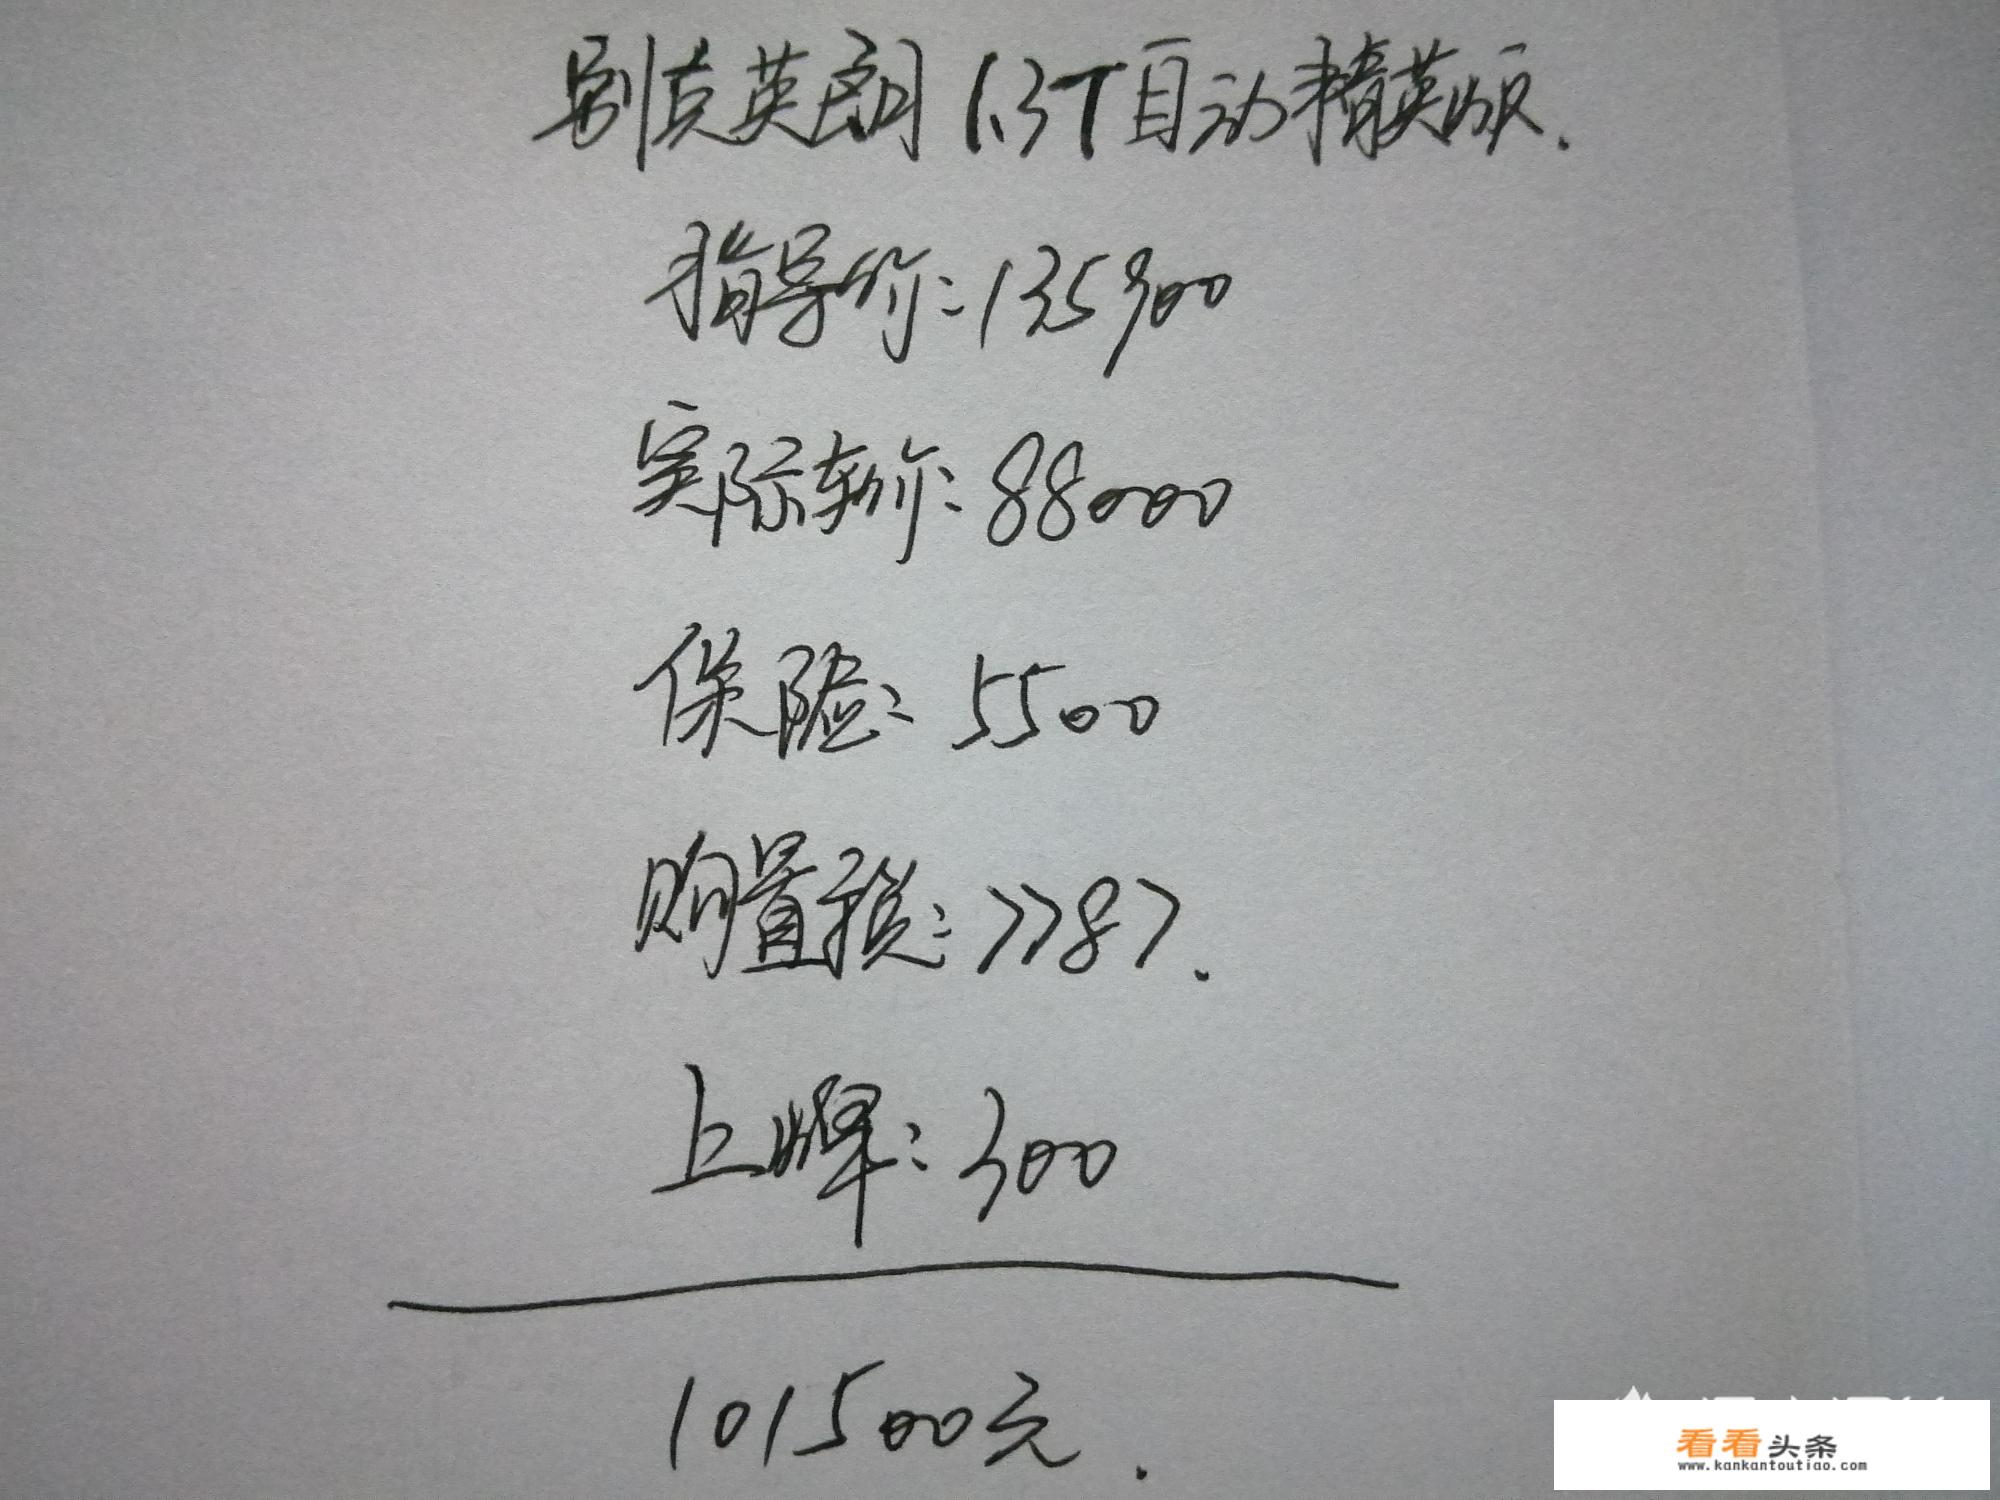 别克英朗 1.3T自动精英版.
指导价:135900
实际车价:88000
保险:5500
购置税:7787.
上牌:300
101500元.
看看头条
www.kankantoutiao.com